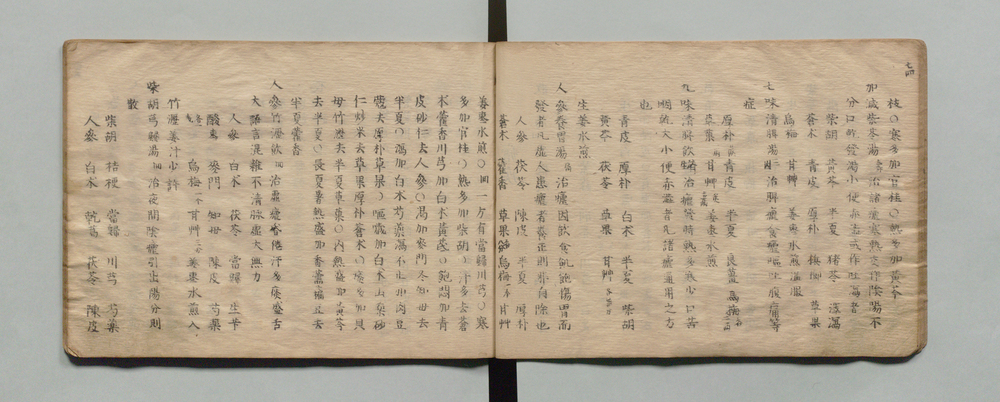 枝〇寒多加官桂〇熱多加黃芩
加減柴苓湯 治諸瘧寒熱交作陰陽不
分口乾發渴小便赤澁或作吐瀉者
柴胡 黃芩 半夏 猪苓 澤瀉
蒼朮 青皮 厚朴 檳榔 草果
烏梅 甘艸 姜枣水煎溫服
七味清脾湯 治脾瘧食瘧嘔吐腹痛等
症
厚朴 青皮 半夏 良薑 烏梅
草菓 甘艸 姜枣水煎
九味清脾飲 治瘧發時熱多寒少口苦
咽 大小便赤澁者凡諸瘧通用之方
也
青皮 厚朴 白朮 半夏 柴胡
黃芩 茯苓 草果 甘艸
生姜水煎
人參養胃湯 治瘧因飲食飢飽傷胃而
發者凡虛人患瘧者養正則邪自除也
人參 茯苓 陳皮 半夏 厚朴
蒼朮 藿香 草果 烏梅 甘艸
姜枣水煎〇一方有當歸川芎〇寒
多加官桂〇熱多加柴胡〇汗多去蒼
朮藿香川芎加白朮黃茋〇飽悶加青
皮砂仁去人參〇渴加麥門冬知母去
半夏〇瀉加白朮芍藥瀉不止加肉豆
蔻去厚朴草果〇嘔噦加白朮山藥砂
仁炒米去草果厚朴蒼朮〇痰多加貝
母竹瀝去半夏草菓〇內熱盛加黃芩
去半夏〇長夏暑熱盛加香薷扁豆去
半夏藿香
人參竹瀝飲 治虛瘧昏倦汗多痰盛舌
大語言混雜不清脉虛大無力
人參 白朮 茯苓 當歸 生芐
酸枣 麥門 知母 陳皮 芍藥
烏梅 甘艸 姜枣水煎入
竹瀝姜汁少許
柴胡芎歸湯 治夜間陰瘧引出陽分則
散
柴胡 桔梗 當歸 川芎 芍藥
人參 白朮 茯苓 陳皮